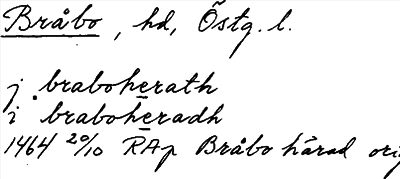 Bråbo, hd, Östg. l.
j. braboherath
i braboheradh
1464 20/10 RAp Bråbo härad orig